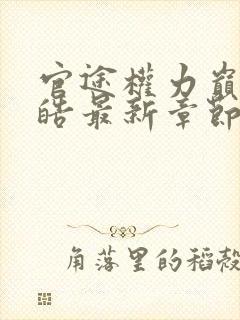 官途權力巔
皓最新章節
角落里的稻殼